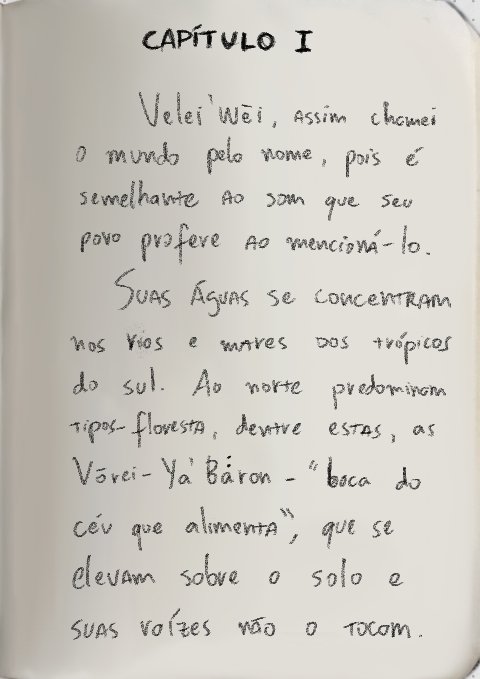 CAPÍTULO I
Velei'Wēi, assim chamei
o mundo pelo nome, pois é
semelhante ao som que seu
povo profere ao mencioná-lo.
Suas águas se concentram
nos rios e mares dos trópicos
do sul. Ao norte predominam
tipos-floresta, dentre estas, as
Vōrei-Ya'Báron - "boca do
céu que alimenta", que se
elevam sobre o solo e
suas raízes não o tocam.